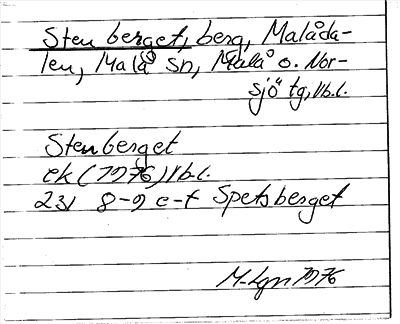 Stenberget, berg, Malåda-
len, Malå sn, Malå o. Nor-
sjö tg, Vb.l.
Stenberget
ek (1976) Vb.l.
23I 8-9 e-f Spetsberget
1976